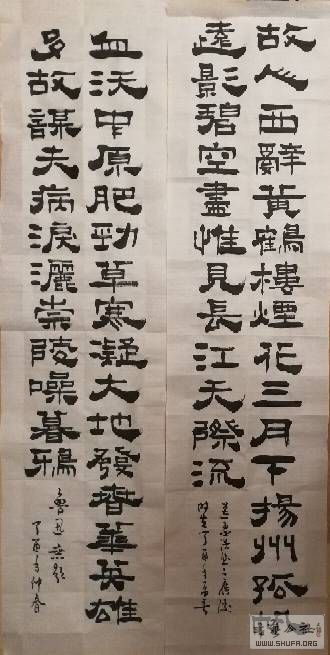 故人西辭黃鶴樓煙花三月下揚州孤
遠影碧空盡惟見長江天際流
血沃中原肥勁草寒凝大地發春華英雄
多故謀夫病淚灑崇陵噪暮鴉
魯迅無題
丁酉年仲春
WWW.SHUFA.ORG